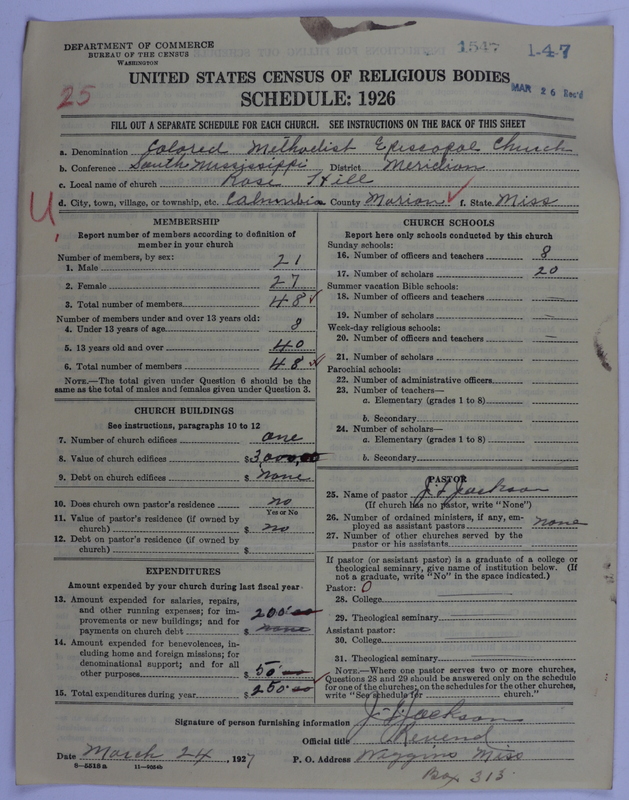 DEPARTMENT OF COMMERCE
BUREAU OF THE CENSUS
WASHINGTON
1547 1-4-7
MAR 26 Rec'd
UNITED STATES CENSUS OF RELIGIOUS BODIES
25
SCHEDULE: 1926
FILL OUT A SEPARATE SCHEDULE FOR EACH CHURCH. SEE INSTRUCTIONS ON THE BACK OF THIS SHEET
a. Denomination Colored Methodist Episcopal Church
b. Conference South Mississippi District Meridian
c. Local name of church Rose Hill
d. City, town, village, or township, etc. Calumbia County Marion f. State Miss
U
MEMBERSHIP
Report number of members according to definition of
member in your church
Number of members, by sex:
1. Male 21
2. Female 27
3. Total number of members 48
Number of members under and over 13 years old:
4. Under 13 years of age 8
5. 13 years old and over 40
6. Total number of members 48
NOTE.—The total given under Question 6 should be the
same as the total of males and females given under Question 3.
CHURCH BUILDINGS
See instructions, paragraphs 10 to 12
7. Number of church edifices one
8. Value of church edifices $3000.00
9. Debt on church edifices $ none
10. Does church own pastor's residence no
Yes or No
11. Value of pastor's residence (if owned by
church) $ no
12. Debt on pastor's residence (if owned by
church) $
EXPENDITURES
Amount expended by your church during last fiscal year
13. Amount expended for salaries, repairs,
and other running expenses; for im-
provements or new buildings; and for
payments on church debt $ 200.00 none
14. Amount expended for benevolences, in-
cluding home and foreign missions; for
denominational support; and for all
other purposes $ 50.00
15. Total expenditures during year $ 250.00
CHURCH SCHOOLS
Report here only schools conducted by this church
Sunday schools:
16. Number of officers and teachers 8
17. Number of scholars 20
Summer vacation Bible schools:
18. Number of officers and teachers —
19. Number of scholars —
Week-day religious schools:
20. Number of officers and teachers —
21. Number of scholars
Parochial schools:
22. Number of administrative officers
23. Number of teachers—
a. Elementary (grades 1 to 8)
b. Secondary
24. Number of scholars—
a. Elementary (grades 1 to 8)
b. Secondary
PASTOR
25. Name of pastor J. L. Jackson
(If church has no pastor, write "None")
26. Number of ordained ministers, if any, em-
ployed as assistant pastors none
27. Number of other churches served by the
pastor or his assistants
If pastor (or assistant pastor) is a graduate of a college or
theological seminary, give name of institution below. (If
not a graduate, write "No" in the space indicated.)
Pastor: 0
28. College
29. Theological seminary
Assistant pastor:
30. College
31. Theological seminary
NOTE.—Where one pastor serves two or more churches,
Questions 28 and 29 should be answered only on the schedule
for one of the churches; on the schedules for the other churches,
write "See schedule for church."
Signature of person furnishing information J. L. Jackson
Official title Revend
Date March 24, 1927 P. O. Address Waggins Miss
8—5518a 11—9054b Box 315